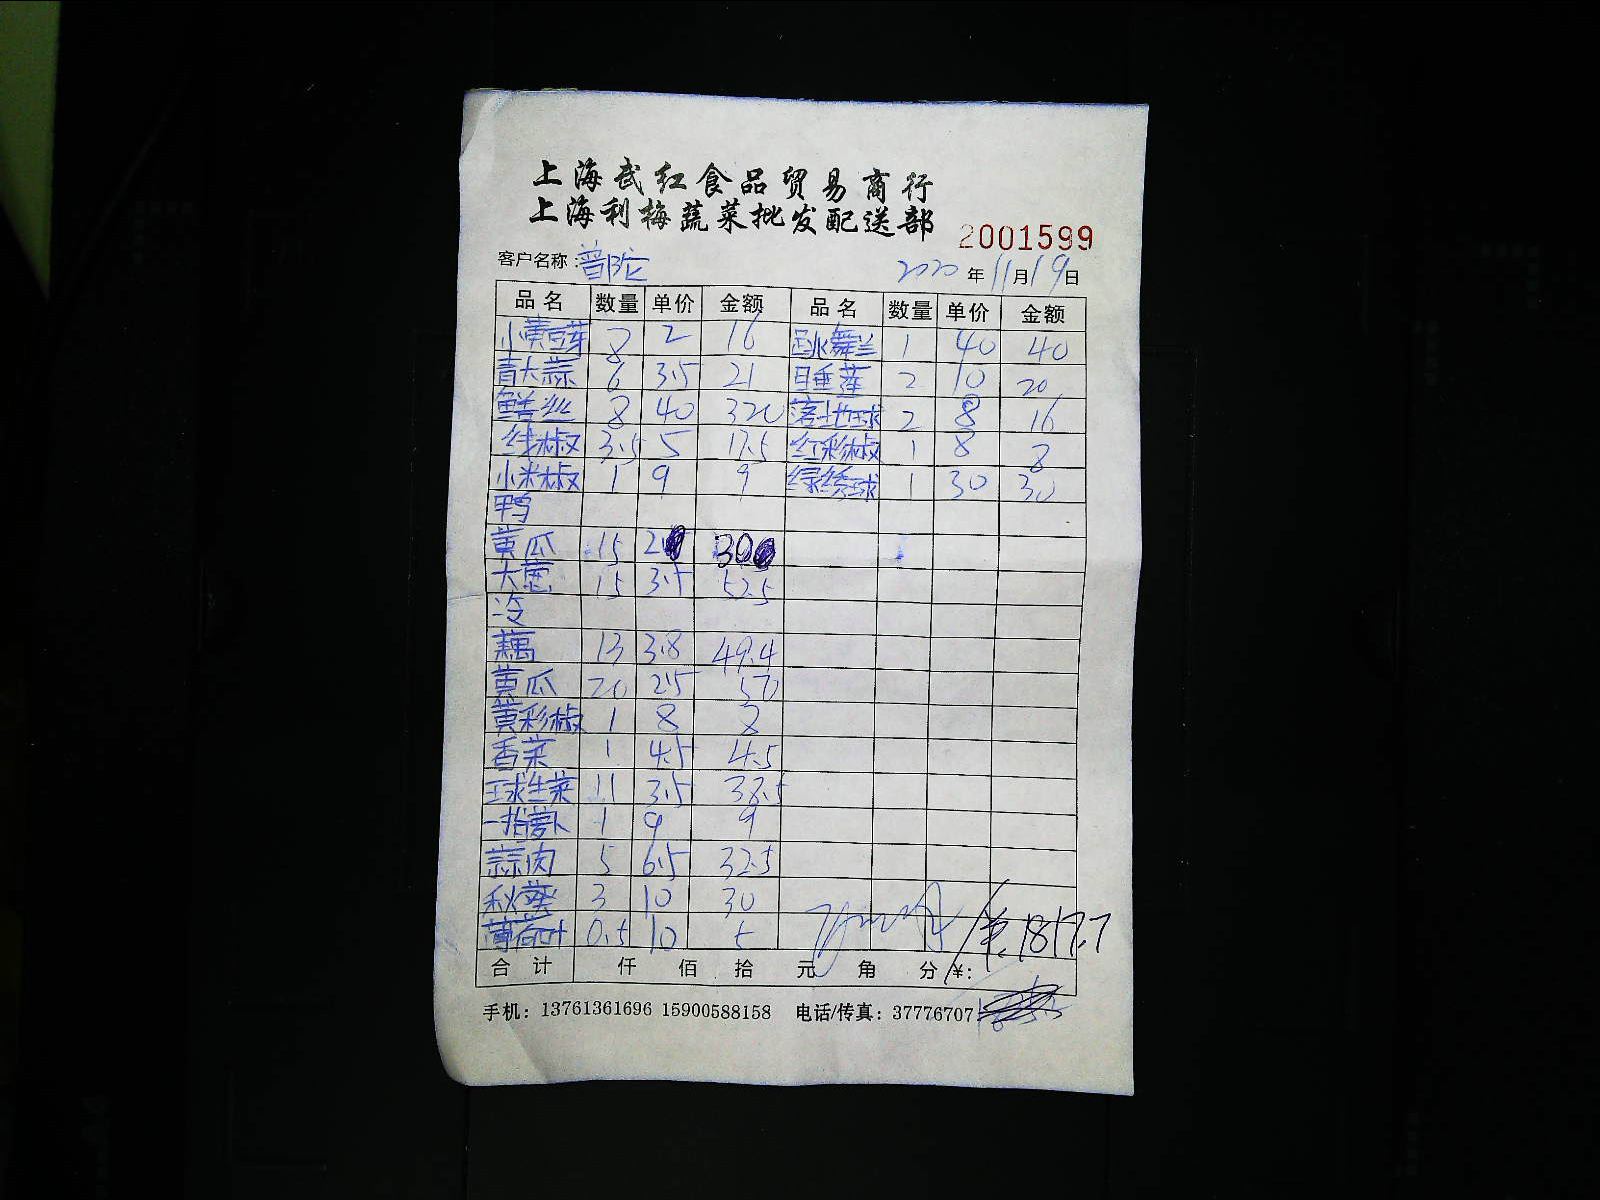 上海武红食品贸易商行
上海利梅蔬菜批发配送部
2001599
客户名称：普陀 2020年11月19日
品名 数量 单价 金额 品名 数量 单价 金额
小黄豆芽 8 2 16 跳舞兰 1 40 40
青大蒜 6 3.5 21 睡莲 2 10 20
鳝丝 8 40 320 落地球 2 8 16
线椒 3.5 5 17.5 红彩椒 1 8 8
小米椒 1 9 9 绿绣球 1 30 30
鸭
黄瓜 15 2 30
大葱 15 3.5 52.5
冷
藕 13 3.8 49.4
黄瓜 20 2.5 50
黄彩椒 1 8 8
香菜 1 4.5 4.5
球生菜 11 3.5 38.5
一指萝卜 1 9 9
蒜肉 5 6.5 32.5
秋葵 3 10 30
薄荷叶 0.5 10 5
合计 仟 佰 拾 元 角 分 ¥：
1817.7
手机：13761361696 15900588158 电话/传真：37776707